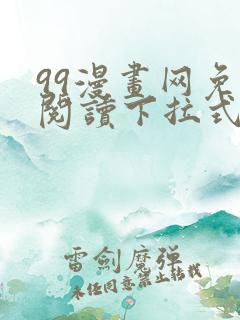 99漫畫网免
閱讀下拉式
雷劍魔弹
未经同意禁止转载